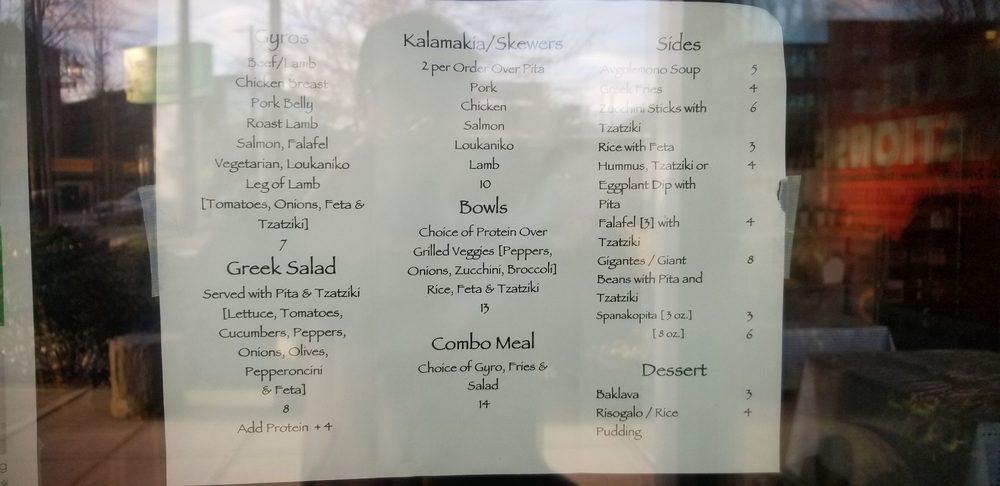 Gyros
Beef/Lamb
Chicken Breast
Pork Belly
Roast Lamb
Salmon, Falafel
Vegetarian, Loukaniko
Leg of Lamb
[Tomatoes, Onions, Feta &
Tzatziki]
7
Greek Salad
Served with Pita & Tzatziki
[Lettuce, Tomatoes,
Cucumbers, Peppers,
Onions, Olives,
Pepperoncini
& Feta]
8
Add Protein +4
Kalamakia/Skewers
2 per Order Over Pita
Pork
Chicken
Salmon
Loukaniko
Lamb
10
Bowls
Choice of Protein Over
Grilled Veggies [Peppers,
Onions, Zucchini, Broccoli]
Rice, Feta & Tzatziki
13
Combo Meal
Choice of Gyro, Fries &
Salad
14
Sides
Avgolemono Soup 5
Greek Fries 4
Zucchini Sticks with 6
Tzatziki
Rice with Feta 3
Hummus, Tzatziki or 4
Eggplant Dip with
Pita
Falafel [3] with 4
Tzatziki
Gigantes / Giant 8
Beans with Pita and
Tzatziki
Spanakopita [3 oz.] 3
[8 oz.] 6
Dessert
Baklava 3
Risogalo / Rice 4
Pudding